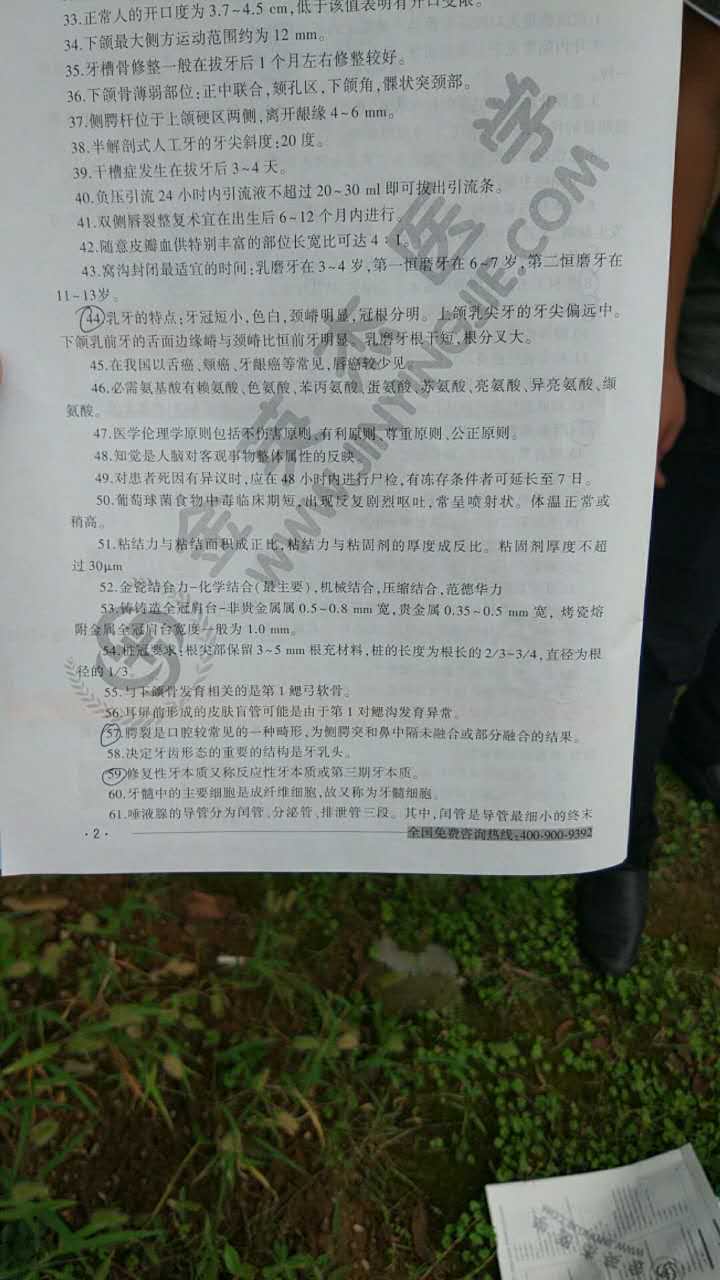 33.正常人的开口度为 3.7~4.5 cm,低于该值表明有开口受限。
34.下颌最大侧方运动范围约为 12 mm。
35.牙槽骨修整一般在拔牙后 1 个月左右修整较好。
36.下颌骨薄弱部位:正中联合,颏孔区,下颌角,髁状突颈部。
37.侧腭杆位于上颌硬区两侧,离开龈缘 4~6 mm。
38.半解剖式人工牙的牙尖斜度:20 度。
39.干槽症发生在拔牙后 3~4 天。
40.负压引流 24 小时内引流液不超过 20~30 ml 即可拔出引流条。
41.双侧唇裂整复术宜在出生后 6~12 个月内进行。
42.随意皮瓣血供特别丰富的部位长宽比可达 4∶1。
43.窝沟封闭最适宜的时间:乳磨牙在 3~4 岁,第一恒磨牙在 6~7 岁,第二恒磨牙在
11~13岁。
44.乳牙的特点:牙冠短小,色白,颈嵴明显,冠根分明。上颌乳尖牙的牙尖偏远中。
下颌乳前牙的舌面边缘嵴与颈嵴比恒前牙明显。乳磨牙根干短,根分叉大。
45.在我国以舌癌、颊癌、牙龈癌等常见,唇癌较少见。
46.必需氨基酸有赖氨酸、色氨酸、苯丙氨酸、蛋氨酸、苏氨酸、亮氨酸、异亮氨酸、缬
氨酸。
47.医学伦理学原则包括不伤害原则、有利原则、尊重原则、公正原则。
48.知觉是人脑对客观事物整体属性的反映。
49.对患者死因有异议时,应在 48 小时内进行尸检,有冻存条件者可延长至 7 日。
50.葡萄球菌食物中毒临床期短,出现反复剧烈呕吐,常呈喷射状。体温正常或
稍高。
51.粘结力与粘结面积成正比,粘结力与粘固剂的厚度成反比。粘固剂厚度不超
过 30μm
52.金瓷结合力-化学结合(最主要),机械结合,压缩结合,范德华力
53.铸铸造全冠肩台-非贵金属属 0.5~0.8 mm 宽,贵金属 0.35~0.5 mm 宽, 烤瓷熔
附金属全冠肩台宽度一般为 1.0 mm。
54.桩冠要求:根尖部保留 3~5 mm 根充材料,桩的长度为根长的 2/3~3/4,直径为根
径的 1/3
55.与下颌骨发育相关的是第 1 鳃弓软骨。
56.耳屏前形成的皮肤盲管可能是由于第 1 对鳃沟发育异常。
57.腭裂是口腔较常见的一种畸形,为侧腭突和鼻中隔未融合或部分融合的结果。
58.决定牙齿形态的重要的结构是牙乳头。
59.修复性牙本质又称反应性牙本质或第三期牙本质。
60.牙髓中的主要细胞是成纤维细胞,故又称为牙髓细胞。
61.唾液腺的导管分为闰管、分泌管、排泄管三段。其中,闰管是导管最细小的终末
· 2 ·
全国免费咨询热线:400-900-9392
金英杰医学
WWW.JINYINGJIE.COM